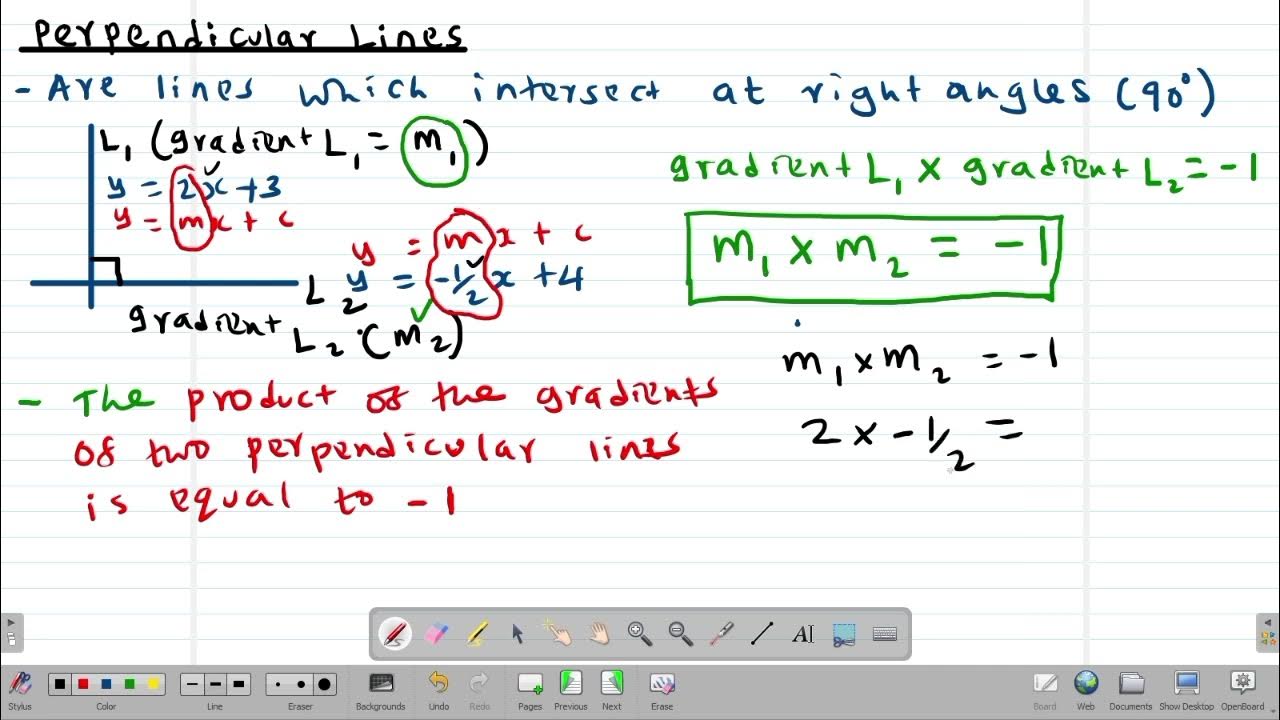 Perpendicular Lines
- Are lines which intersect at right angles (90°)
L₁ (gradient L₁ = m₁)
y = 2x + 3
y = mx + c
y = mx + c
L₂ y = -1/2 x + 4
gradient L₂ (m₂)
gradient L₁ x gradient L₂ = -1
m₁ x m₂ = -1
m₁ x m₂ = -1
2 x -1/2 =
- The product of the gradients
of two perpendicular lines
is equal to -1
AI
Stylus Color Line Eraser Backgrounds Undo Redo Pages Previous Next Erase Board Web Documents Show Desktop OpenBoard